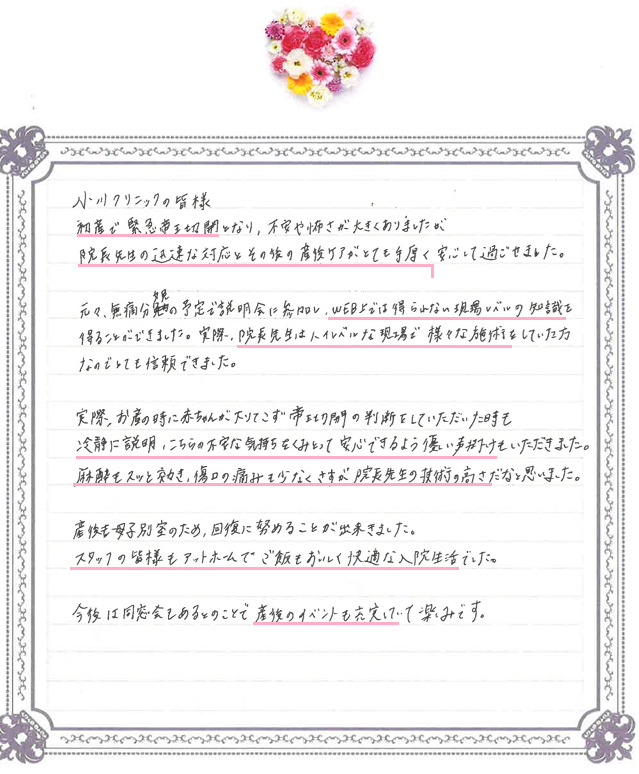 小川クリニックの皆様
初産で緊急帝王切開となり、不安や怖さが大きくありましたが
院長先生の迅速な対応とその後の産後ケアがとても手厚く安心して過ごせました。
元々、無痛分娩の予定で説明会に参加し、WEB上では得られない現場レベルの知識を
得ることができました。実際、院長先生はハイレベルな現場で様々な施術をしていた方
なのでとても信頼できました。
実際、お産の時に赤ちゃんが下りてこず帝王切開の判断をしていただいた時も
冷静に説明、こちらの不安な気持ちをくみとって安心できるよう優しい声掛けもいただきました。
麻酔もスッと効き、傷口の痛みも少なくさすが院長先生の技術の高さだなと思いました。
産後も母子別室のため、回復に努めることが出来きました。
スタッフの皆様もアットホームでご飯もおいしく快適な入院生活でした。
今後は同窓会もあるとのことで産後のイベントも充実していて楽しみです。